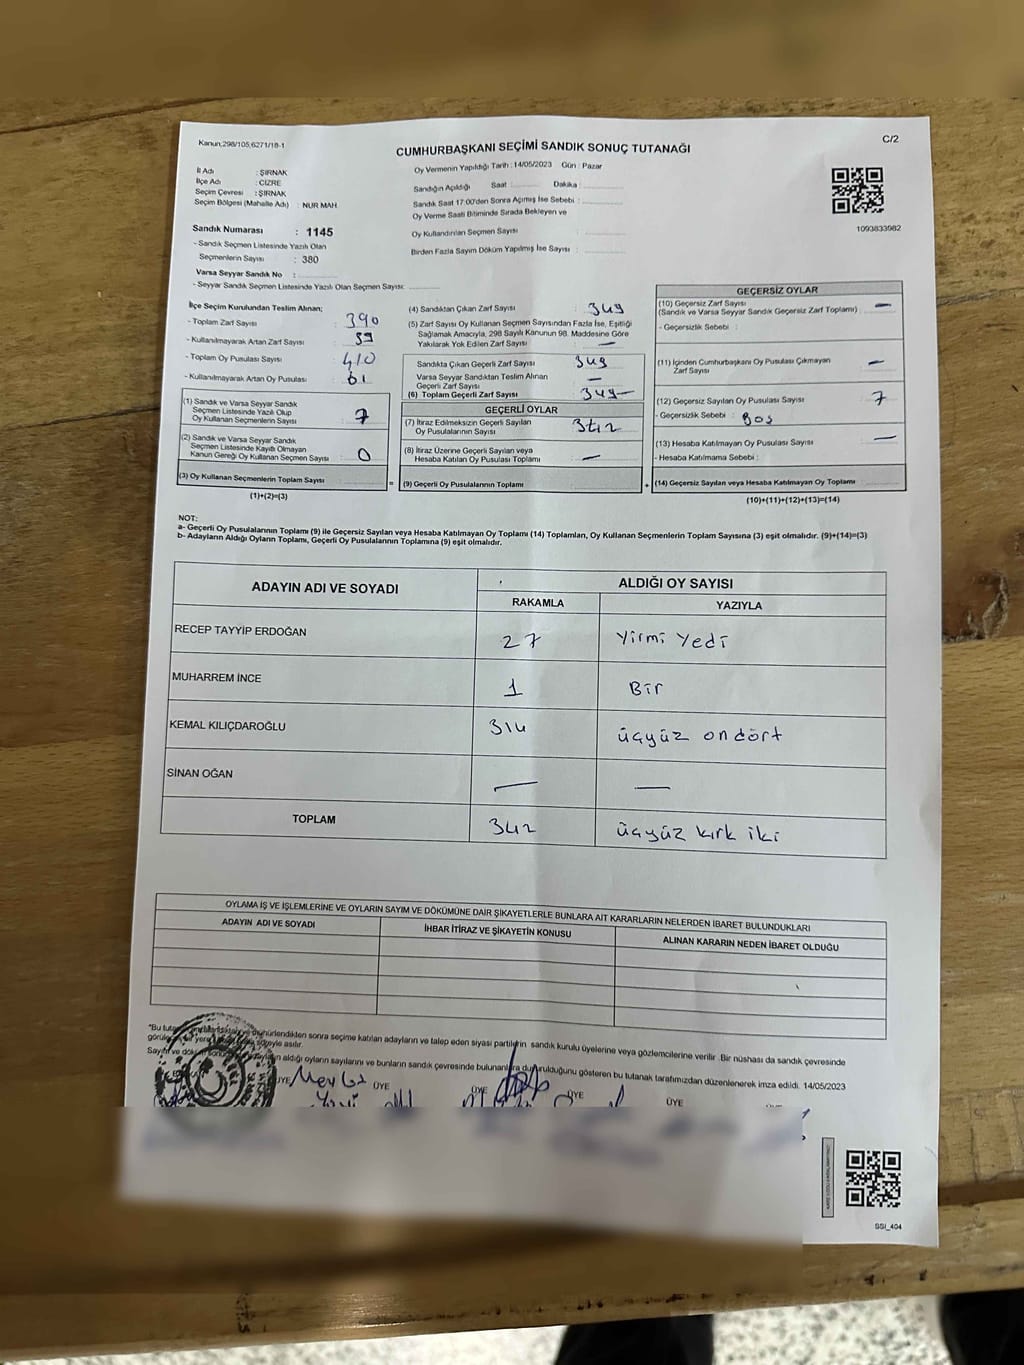 Kanun;298/105;6271/18-1
C/2
CUMHURBAŞKANI SEÇİMİ SANDIK SONUÇ TUTANAĞI
İl Adı : ŞIRNAK
İlçe Adı : CİZRE
Seçim Çevresi : ŞIRNAK
Seçim Bölgesi (Mahalle Adı) : NUR MAH.
Sandık Numarası : 1145
- Sandık Seçmen Listesinde Yazılı Olan
Seçmenlerin Sayısı : 380
Varsa Seyyar Sandık No :
- Seyyar Sandık Seçmen Listesinde Yazılı Olan Seçmen Sayısı:
Oy Vermenin Yapıldığı Tarih :14/05/2023 Gün : Pazar
Sandığın Açıldığı Saat : Dakika :
Sandık Saat 17:00'den Sonra Açımış İse Sebebi :
Oy Verme Saati Bitiminde Sırada Bekleyen ve
Oy Kullandırılan Seçmen Sayısı :
Birden Fazla Sayım Döküm Yapılmış İse Sayısı :
1093833982
İlçe Seçim Kurulundan Teslim Alınan;
- Toplam Zarf Sayısı : 390
- Kullanılmayarak Artan Zarf Sayısı :
- Toplam Oy Pusulası Sayısı : 410
- Kullanılmayarak Artan Oy Pusulası : 61
(1) Sandık ve Varsa Seyyar Sandık
Seçmen Listesinde Yazılı Olup
Oy Kullanan Seçmenlerin Sayısı : 7
(2) Sandık ve Varsa Seyyar Sandık
Seçmen Listesinde Kayıtlı Olmayan
Kanun Gereği Oy Kullanan Seçmen Sayısı : 0
(3) Oy Kullanan Seçmenlerin Toplam Sayısı :
(1)+(2)=(3)
(4) Sandıktan Çıkan Zarf Sayısı : 349
(5) Zarf Sayısı Oy Kullanan Seçmen Sayısından Fazla İse, Eşitliği
Sağlamak Amacıyla, 298 Sayılı Kanunun 98. Maddesine Göre
Yakılarak Yok Edilen Zarf Sayısı : —
Sandıkta Çıkan Geçerli Zarf Sayısı : 349
Varsa Seyyar Sandıktan Teslim Alınan
Geçerli Zarf Sayısı : —
(6) Toplam Geçerli Zarf Sayısı : 349
GEÇERLİ OYLAR
(7) İtiraz Edilmeksizin Geçerli Sayılan
Oy Pusulalarının Sayısı : 342
(8) İtiraz Üzerine Geçerli Sayılan veya
Hesaba Katılan Oy Pusulası Toplamı : —
(9) Geçerli Oy Pusulalarının Toplamı :
GEÇERSİZ OYLAR
(10) Geçersiz Zarf Sayısı
(Sandık ve Varsa Seyyar Sandık Geçersiz Zarf Toplamı) : —
- Geçersizlik Sebebi :
(11) İçinden Cumhurbaşkanı Oy Pusulası Çıkmayan
Zarf Sayısı : —
(12) Geçersiz Sayılan Oy Pusulası Sayısı : 7
- Geçersizlik Sebebi : Boş
(13) Hesaba Katılmayan Oy Pusulası Sayısı : —
- Hesaba Katılmama Sebebi :
(14) Geçersiz Sayılan veya Hesaba Katılmayan Oy Toplamı :
(10)+(11)+(12)+(13)=(14)
NOT:
a- Geçerli Oy Pusulalarının Toplamı (9) ile Geçersiz Sayılan veya Hesaba Katılmayan Oy Toplamı (14) Toplamları, Oy Kullanan Seçmenlerin Toplam Sayısına (3) eşit olmalıdır. (9)+(14)=(3)
b- Adayların Aldığı Oyların Toplamı, Geçerli Oy Pusulalarının Toplamına (9) eşit olmalıdır.
ADAYIN ADI VE SOYADI
ALDIĞI OY SAYISI
RAKAMLA YAZIYLA
RECEP TAYYİP ERDOĞAN 27 Yirmi Yedi
MUHARREM İNCE 1 Bir
KEMAL KILIÇDAROĞLU 314 üçyüz ondört
SİNAN OĞAN — —
TOPLAM 342 üçyüz kırk iki
OYLAMA İŞ VE İŞLEMLERİNE VE OYLARIN SAYIM VE DÖKÜMÜNE DAİR ŞİKAYETLERLE BUNLARA AİT KARARLARIN NELERDEN İBARET BULUNDUKLARI
ADAYIN ADI VE SOYADI İHBAR İTİRAZ VE ŞİKAYETİN KONUSU ALINAN KARARIN NEDEN İBARET OLDUĞU
sonra seçime katılan adayların ve talep eden siyasi partilerin sandık kurulu üyelerine veya gözlemcilerine verilir .Bir nüshası da sandık çevresinde
asılır.
aldığı oyların sayılarını ve bunların sandık çevresinde bulunanlara duyurulduğunu gösteren bu tutanak tarafımızdan düzenlenerek imza edildi. 14/05/2023
ÜYE ÜYE ÜYE ÜYE
SSİ_404